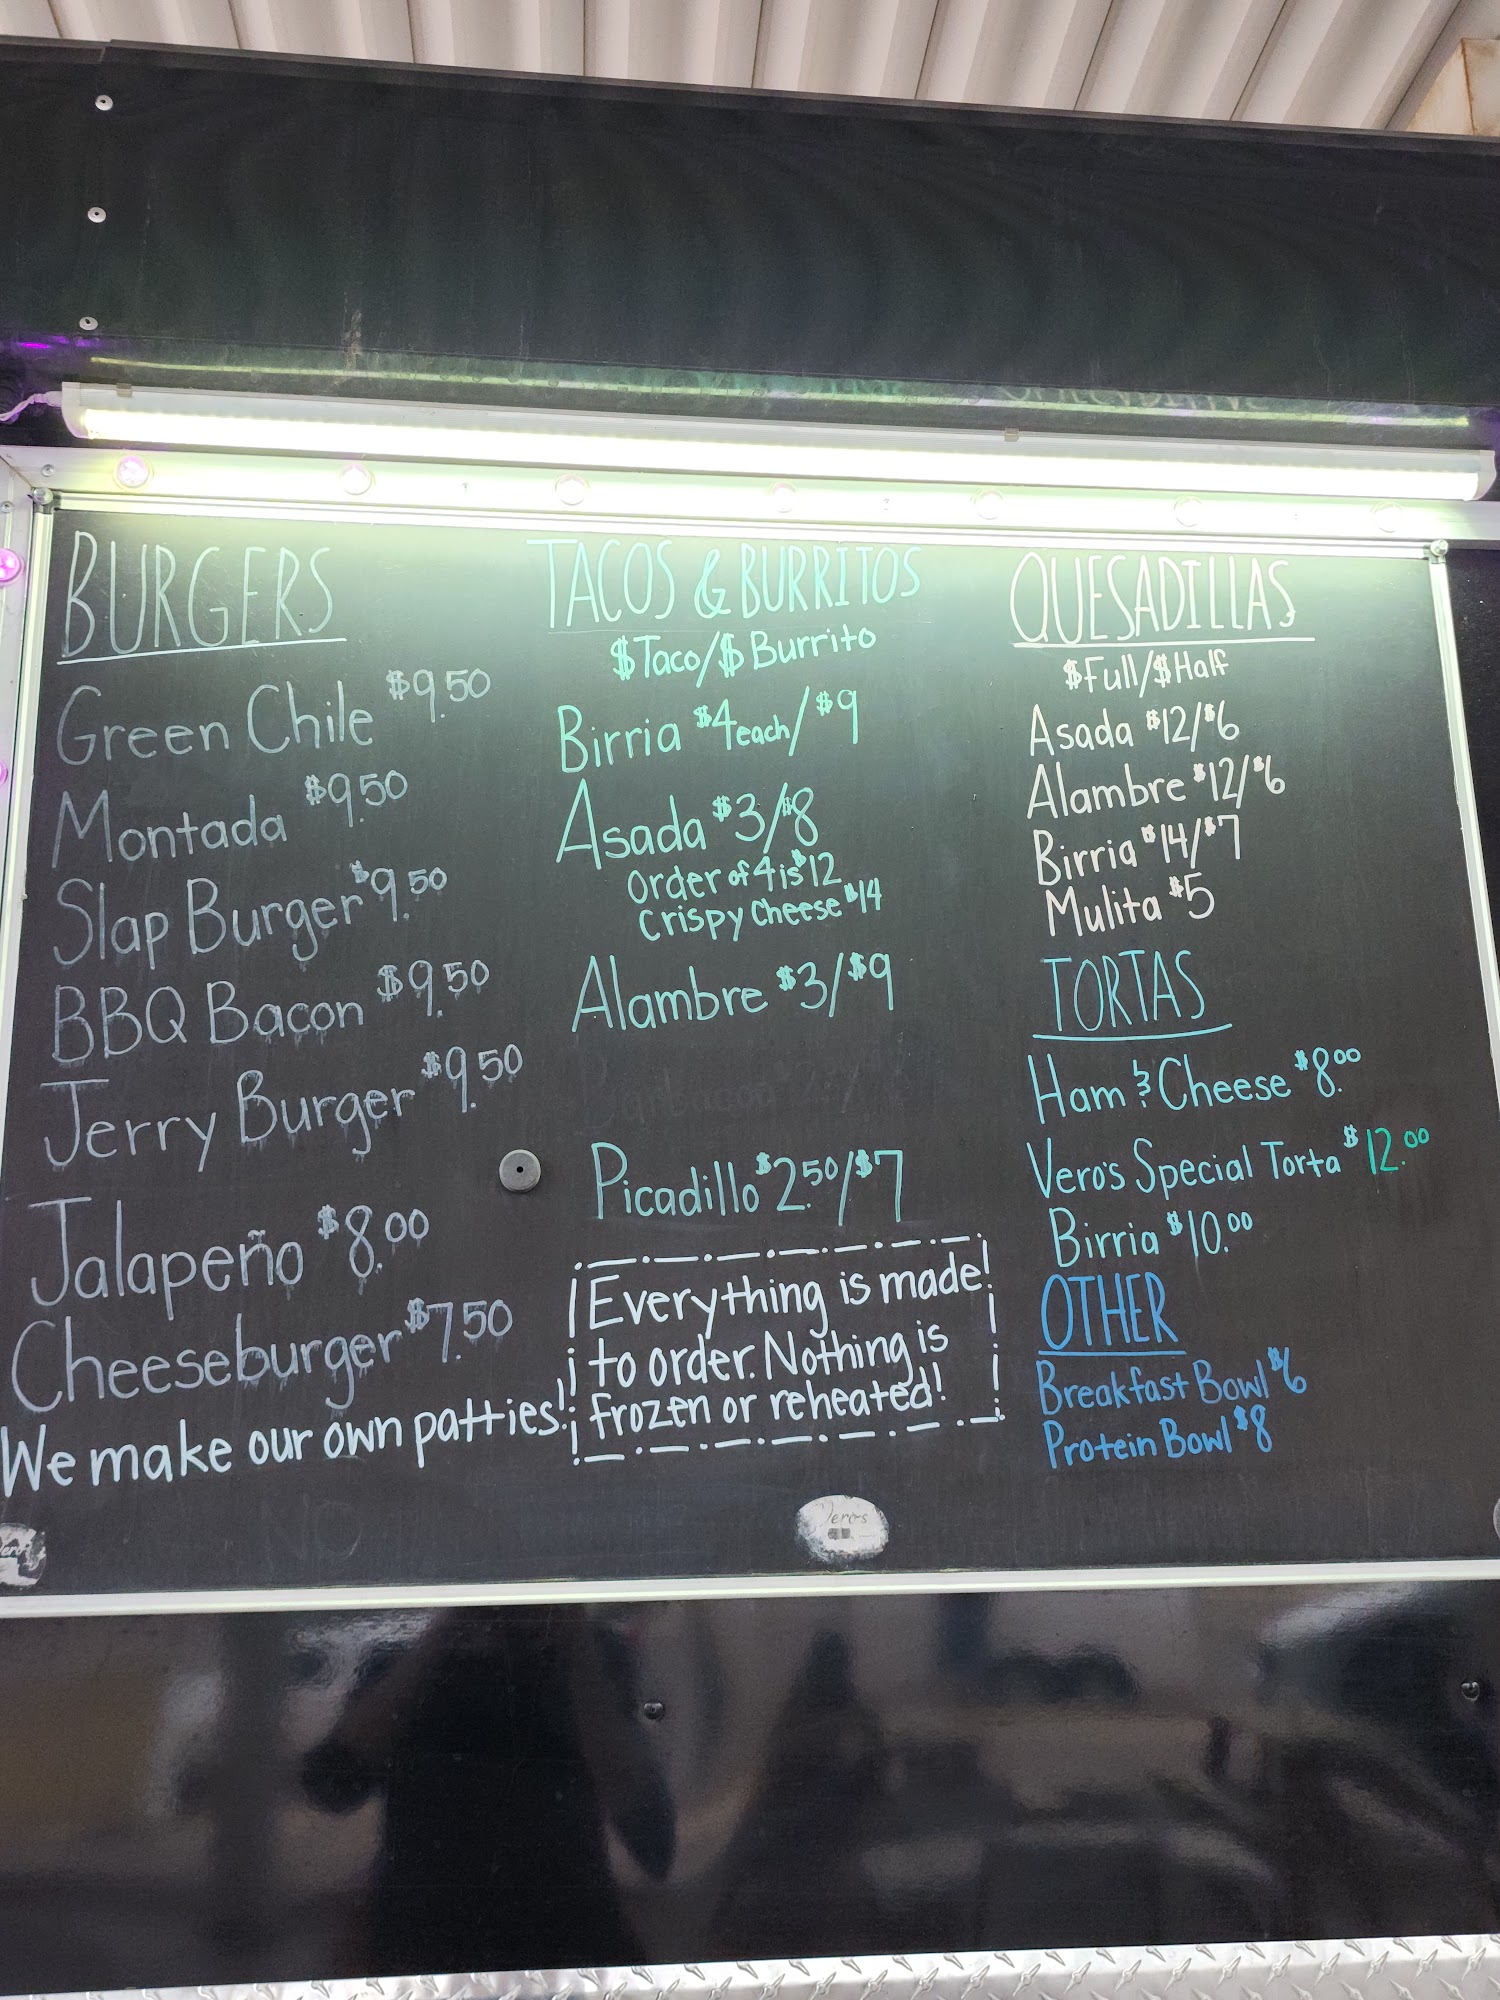 BURGERS
Green Chile $9.50
Montada $9.50
Slap Burger $9.50
BBQ Bacon $9.50
Jerry Burger $9.50
Jalapeño $8.00
Cheeseburger $7.50
We make our own patties!
TACOS & BURRITOS
$Taco/$ Burrito
Birria $4 each/$9
Asada $3/$8
Order of 4 is $12
Crispy Cheese $14
Alambre $3/$9
Picadillo $2.50/$7
Everything is made
to order. Nothing is
frozen or reheated!
QUESADILLAS
$Full/$Half
Asada $12/$6
Alambre $12/$6
Birria $14/$7
Mulita $5
TORTAS
Ham & Cheese $8.00
Vero's Special Torta $12.00
Birria $10.00
OTHER
Breakfast Bowl $6
Protein Bowl $8
Vero's